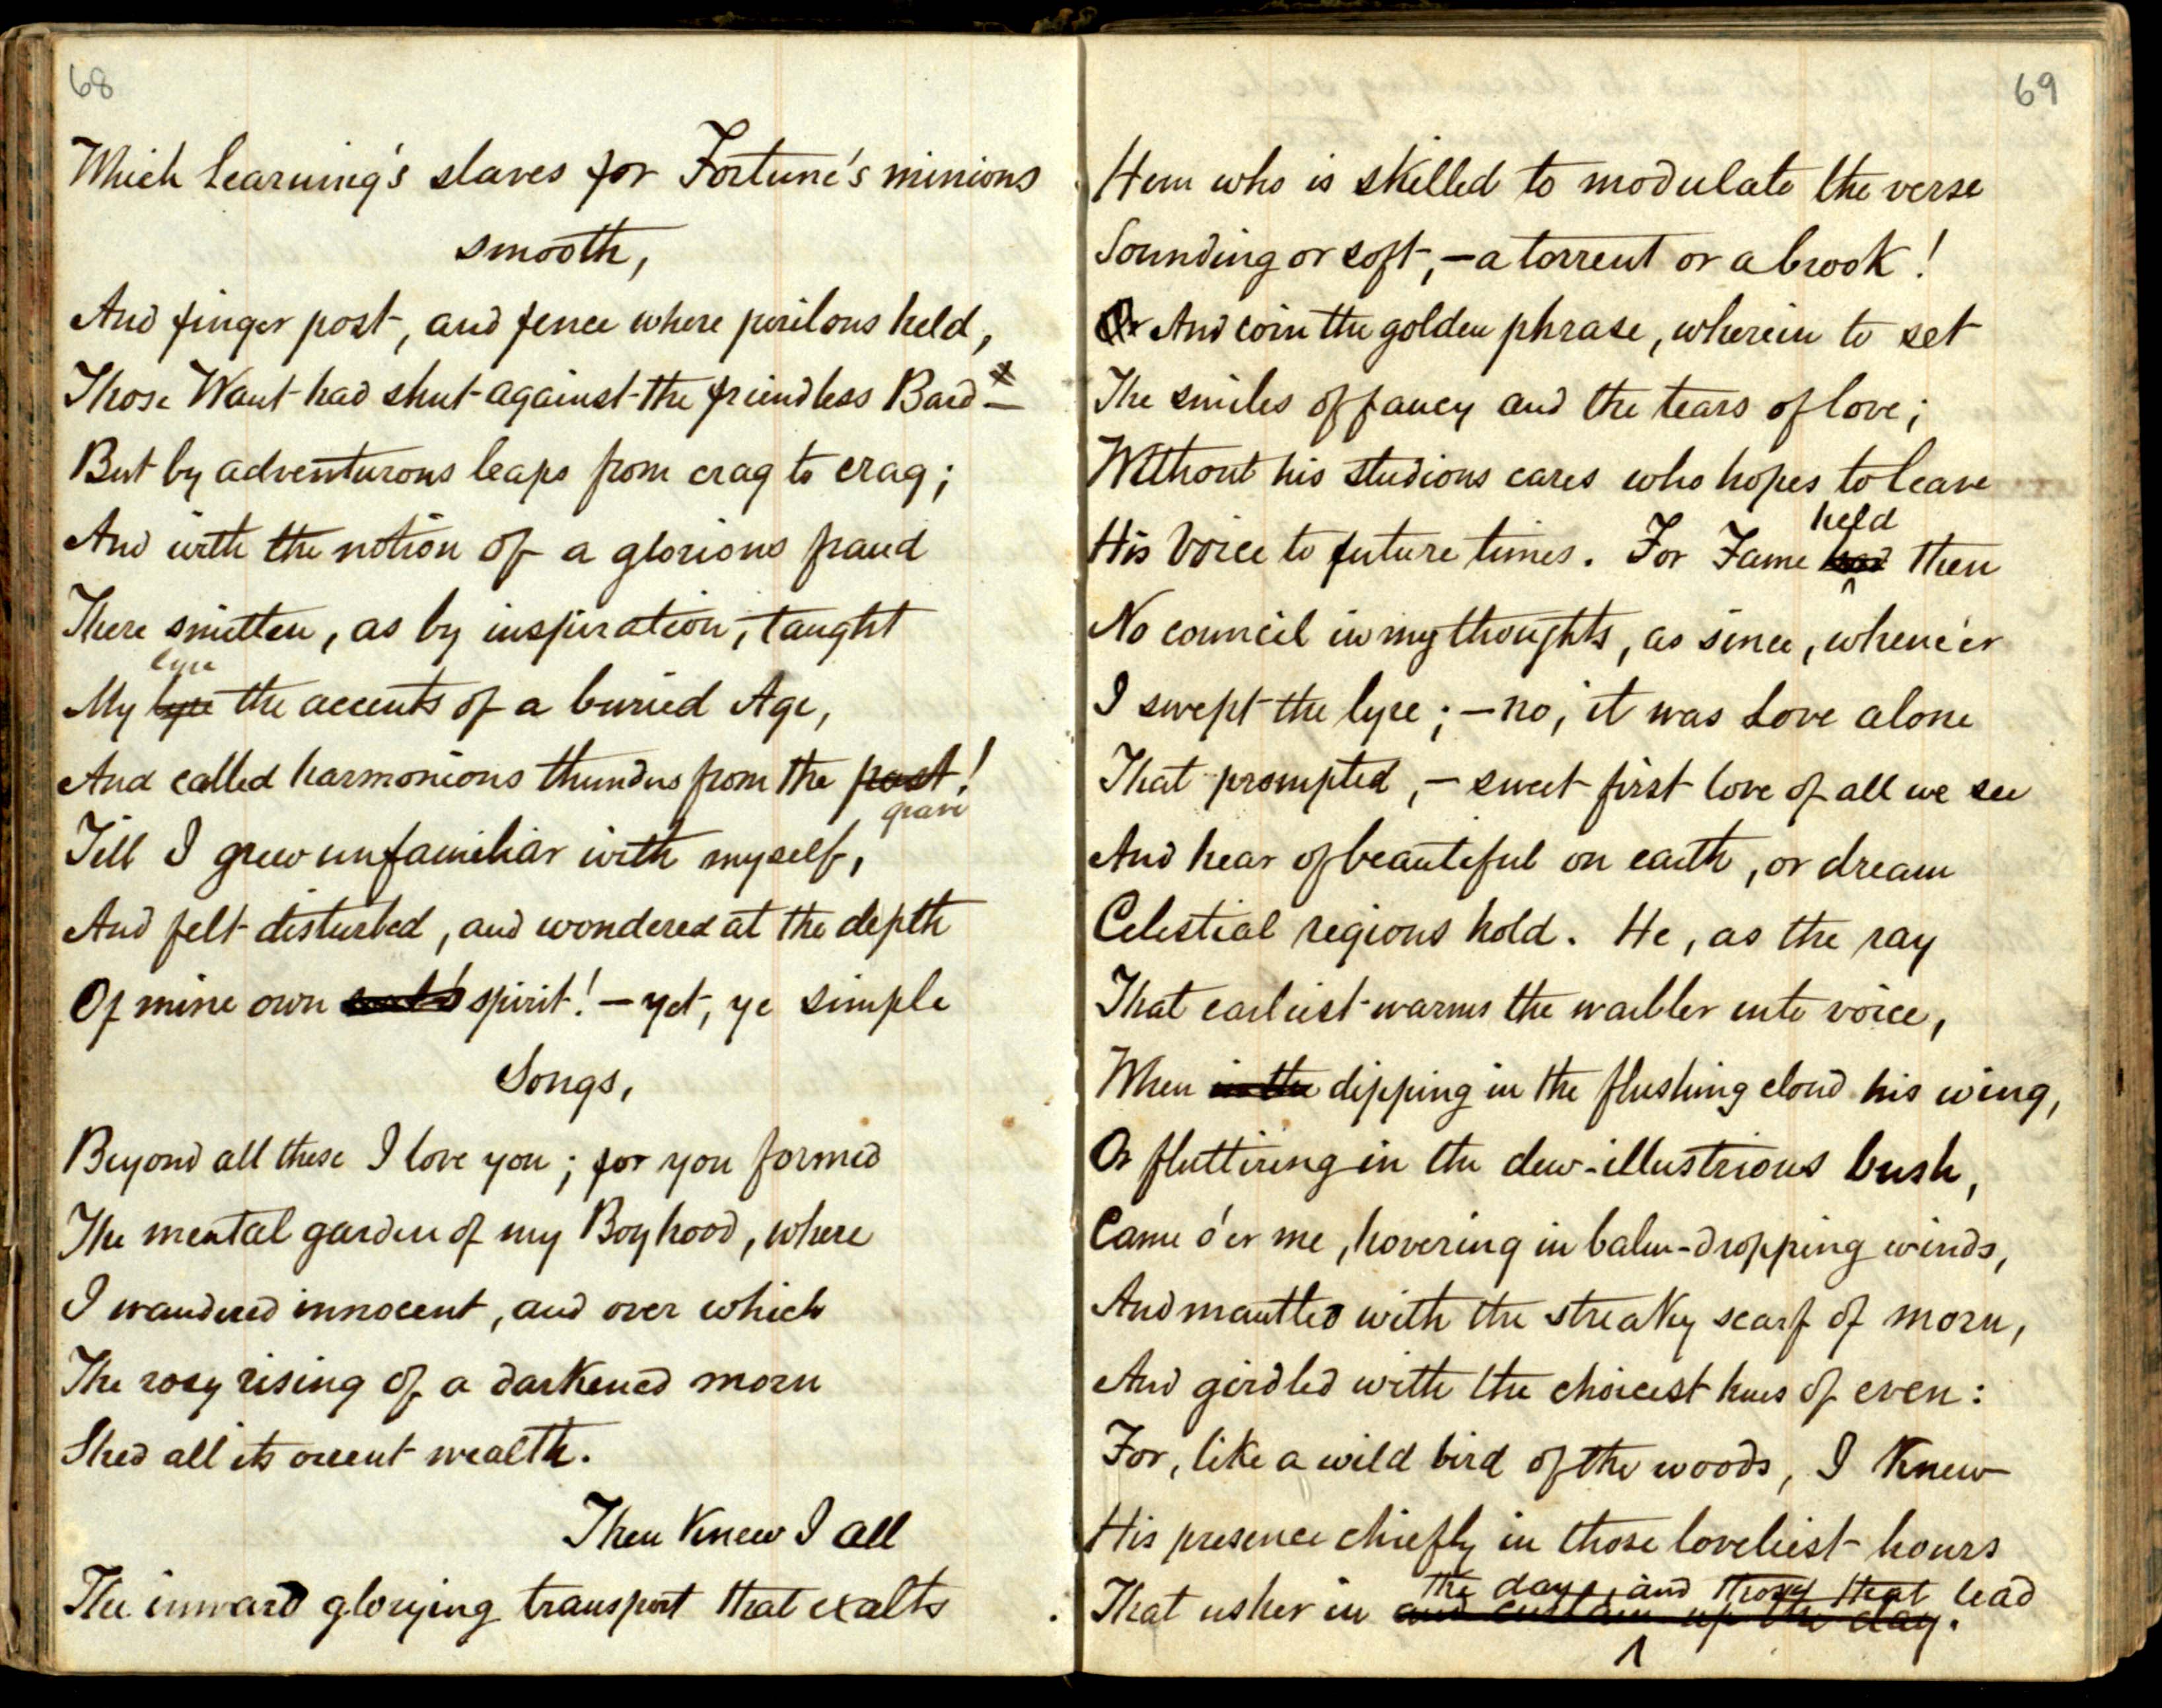 68
Which learning's slaves for Fortune's minions
smooth,
And finger post, and fence where perilous held,
Those Want had shut against the friendless Bard —
But by adventurous leaps from crag to crag;
And with the notion of a glorious fraud
There smitten, as by inspiration, taught
lyre
My lyre the accents of a buried Age,
And called harmonious thunders from the past!
grave
Till I grew unfamiliar with myself,
And felt disturbed, and wondered at the depth
Of mine own soul's spirit! — yet, ye simple
Songs,
Beyond all these I love you; for you formed
The mental garden of my Boyhood, where
I wandered innocent, and over which
The rosy rising of a darkened morn
Shed all its orient wealth.
Then Knew I all
The inward glorying transport that exalts
69
Him who is skilled to modulate the verse
Sounding or soft, — a torrent or a brook!
Or And coin the golden phrase, wherein to set
The smiles of fancy and the tears of love;
Without his studious cares who hopes to leave
held
His Voice to future times. For Fame had then
No council in my thoughts, as since, whene'er
I swept the lyre; — no, it was Love alone
That prompted, — sweet first love of all we see
And hear of beautiful on earth, or dream
Celestial regions hold. He, as the ray
That earliest warms the warbler into voice,
When in the dipping in the flushing cloud his wing,
Or fluttering in the dew-illustrious bush,
Came o'er me, hovering in balm-dropping winds,
And mantled with the streaky scarf of morn,
And girdled with the choicest hues of even:
For, like a wild bird of the woods, I Knew
His presence chiefly in those loveliest hours
the day, and those that lead
That usher in and curtain up the day.